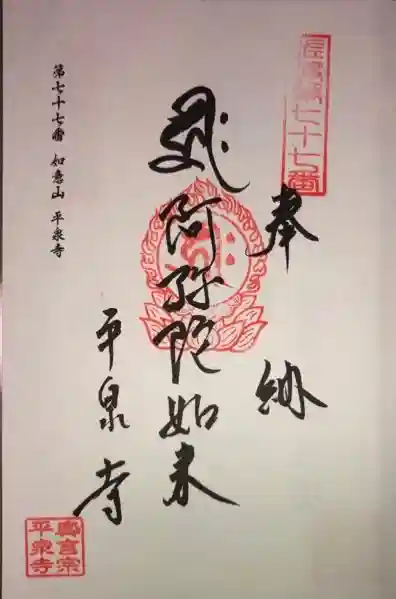 七十七番
奉納
阿弥陀如来
平泉寺
第七十七番 如意山 平泉寺
真言宗
平泉寺